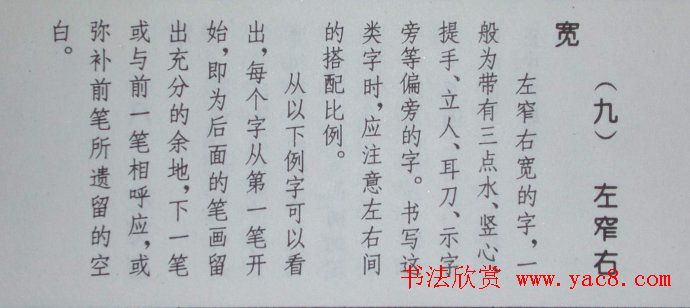 （九） 左窄右
宽
左窄右宽的字，一
般为带有三点水、竖心、
提手、立人、耳刀、示字
旁等偏旁的字。书写这
类字时，应注意左右间
的搭配比例。
从以下例字可以看
出，每个字从第一笔开
始，即为后面的笔画留
出充分的余地，下一笔
或与前一笔相呼应，或
弥补前笔所遗留的空
白。
书法欣赏 www.yac8.com